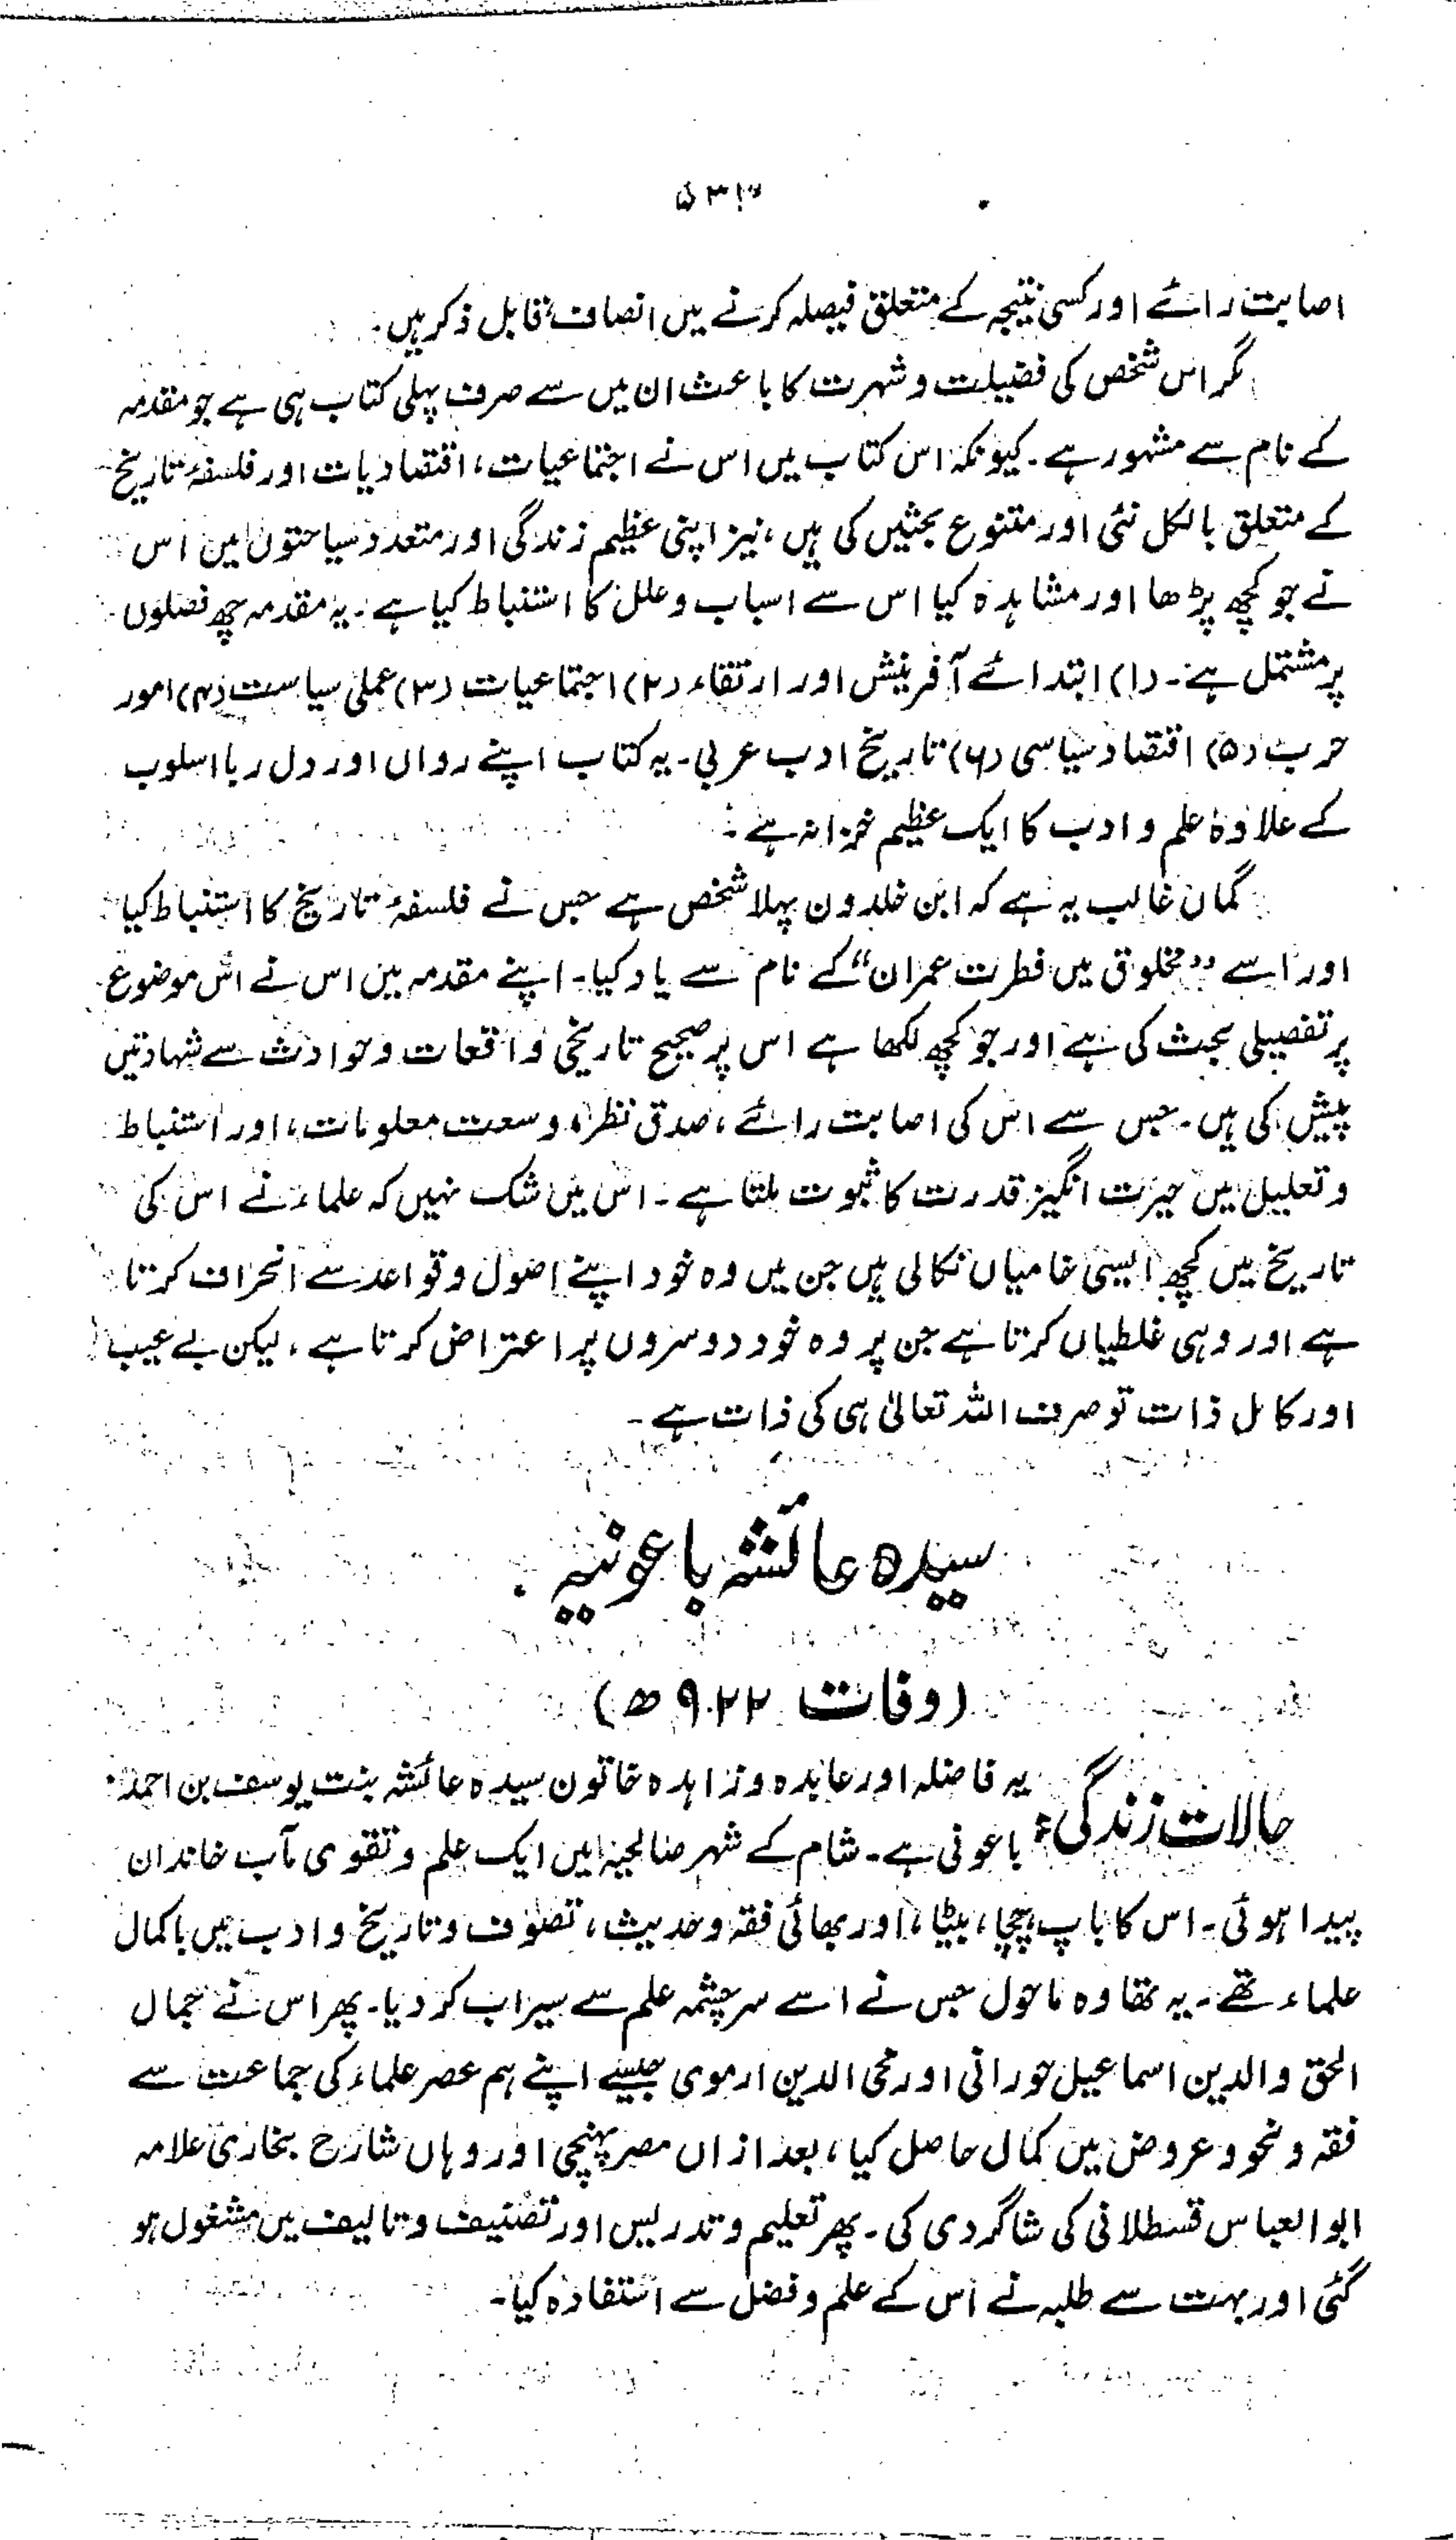 اصابت رائے اور کسی نتیجہ کے متعلق فیصلہ کرنے میں انصاف قابل ذکر ہیں۔
مگر اس شخص کی فضیلت و شہرت کا باعث ان میں سے صرف پہلی کتاب ہی ہے جو مقدمہ
کے نام سے مشہور ہے۔ کیونکہ اس کتاب میں اس نے اجتماعیات، اقتصادیات اور فلسفۂ تاریخ
کے متعلق بالکل نئی اور متنوع بحثیں کی ہیں، نیز اپنی عظیم زندگی اور متعدد سیاحتوں میں اس
نے جو کچھ پڑھا اور مشاہدہ کیا اس سے اسباب و علل کا استنباط کیا ہے۔ یہ مقدمہ چھ فصلوں
پر مشتمل ہے۔ (۱) ابتدائے آفرینش اور ارتقاء (۲) اجتماعیات (۳) عملی سیاست (۴) امور
حرب (۵) اقتصاد سیاسی (۶) تاریخ ادب عربی۔ یہ کتاب اپنے رواں اور دل ربا اسلوب
کے علاوہ علم و ادب کا ایک عظیم خزانہ ہے۔
گمان غالب یہ ہے کہ ابن خلدون پہلا شخص ہے جس نے فلسفۂ تاریخ کا استنباط کیا
اور اسے ”مخلوق میں فطرت عمران“ کے نام سے یاد کیا۔ اپنے مقدمہ میں اس نے اس موضوع
پر تفصیلی بحث کی ہے اور جو کچھ لکھا ہے اس پر صحیح تاریخی واقعات و حوادث سے شہادتیں
پیش کی ہیں۔ جس سے اس کی اصابت رائے، صدق نظر، وسعت معلومات، اور استنباط
و تعلیل میں حیرت انگیز قدرت کا ثبوت ملتا ہے۔ اس میں شک نہیں کہ علماء نے اس کی
تاریخ میں کچھ ایسی خامیاں نکالی ہیں جن میں وہ خود اپنے اصول و قواعد سے انحراف کرتا
ہے اور وہی غلطیاں کرتا ہے جن پر وہ خود دوسروں پر اعتراض کرتا ہے، لیکن بے عیب
اور کامل ذات تو صرف اللہ تعالیٰ ہی کی ذات ہے۔
سیدہ عائشہ باعونیہ
(وفات ۹۲۲ ھ)
حالات زندگی: یہ فاضلہ اور عابدہ و زاہدہ خاتون سیدہ عائشہ بنت یوسف بن احمد
باعونی ہے۔ شام کے شہر صالحیہ میں ایک علم و تقوی مآب خاندان
پیدا ہوئی۔ اس کا باپ، چچا، بیٹا، اور بھائی فقہ و حدیث، تصوف و تاریخ و ادب میں باکمال
علماء تھے۔ یہ تھا وہ ماحول جس نے اسے سرچشمہ علم سے سیراب کر دیا۔ پھر اس نے جمال
الحق والدین اسماعیل حورانی اور محی الدین ارموی جیسے اپنے ہم عصر علماء کی جماعت سے
فقہ و نحو و عروض میں کمال حاصل کیا، بعد ازاں مصر پہنچی اور وہاں شارح بخاری علامہ
ابو العباس قسطلانی کی شاگردی کی۔ پھر تعلیم و تدریس اور تصنیف و تالیف میں مشغول ہو
گئی اور بہت سے طلبہ نے اس کے علم و فضل سے استفادہ کیا۔